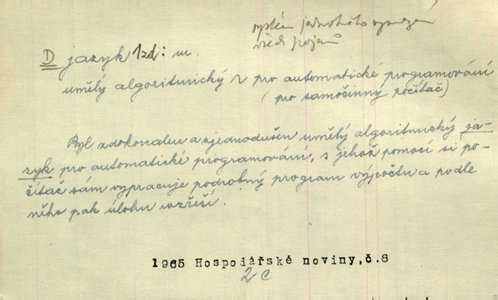 systém jednotného
všech pojmů
D jazyk 1zd: m.
umělý algoritmický r pro automatické programování
(pro samočinný počítač)
Byl zdokonalen a zjednodušen umělý algoritmický ja-
zyk pro automatické programování, s jehož pomocí si po-
čítač sám vypracuje podrobný program výpočtu a podle
něho pak úlohu vyřeší.
1965 Hospodářské noviny, č.8
2c